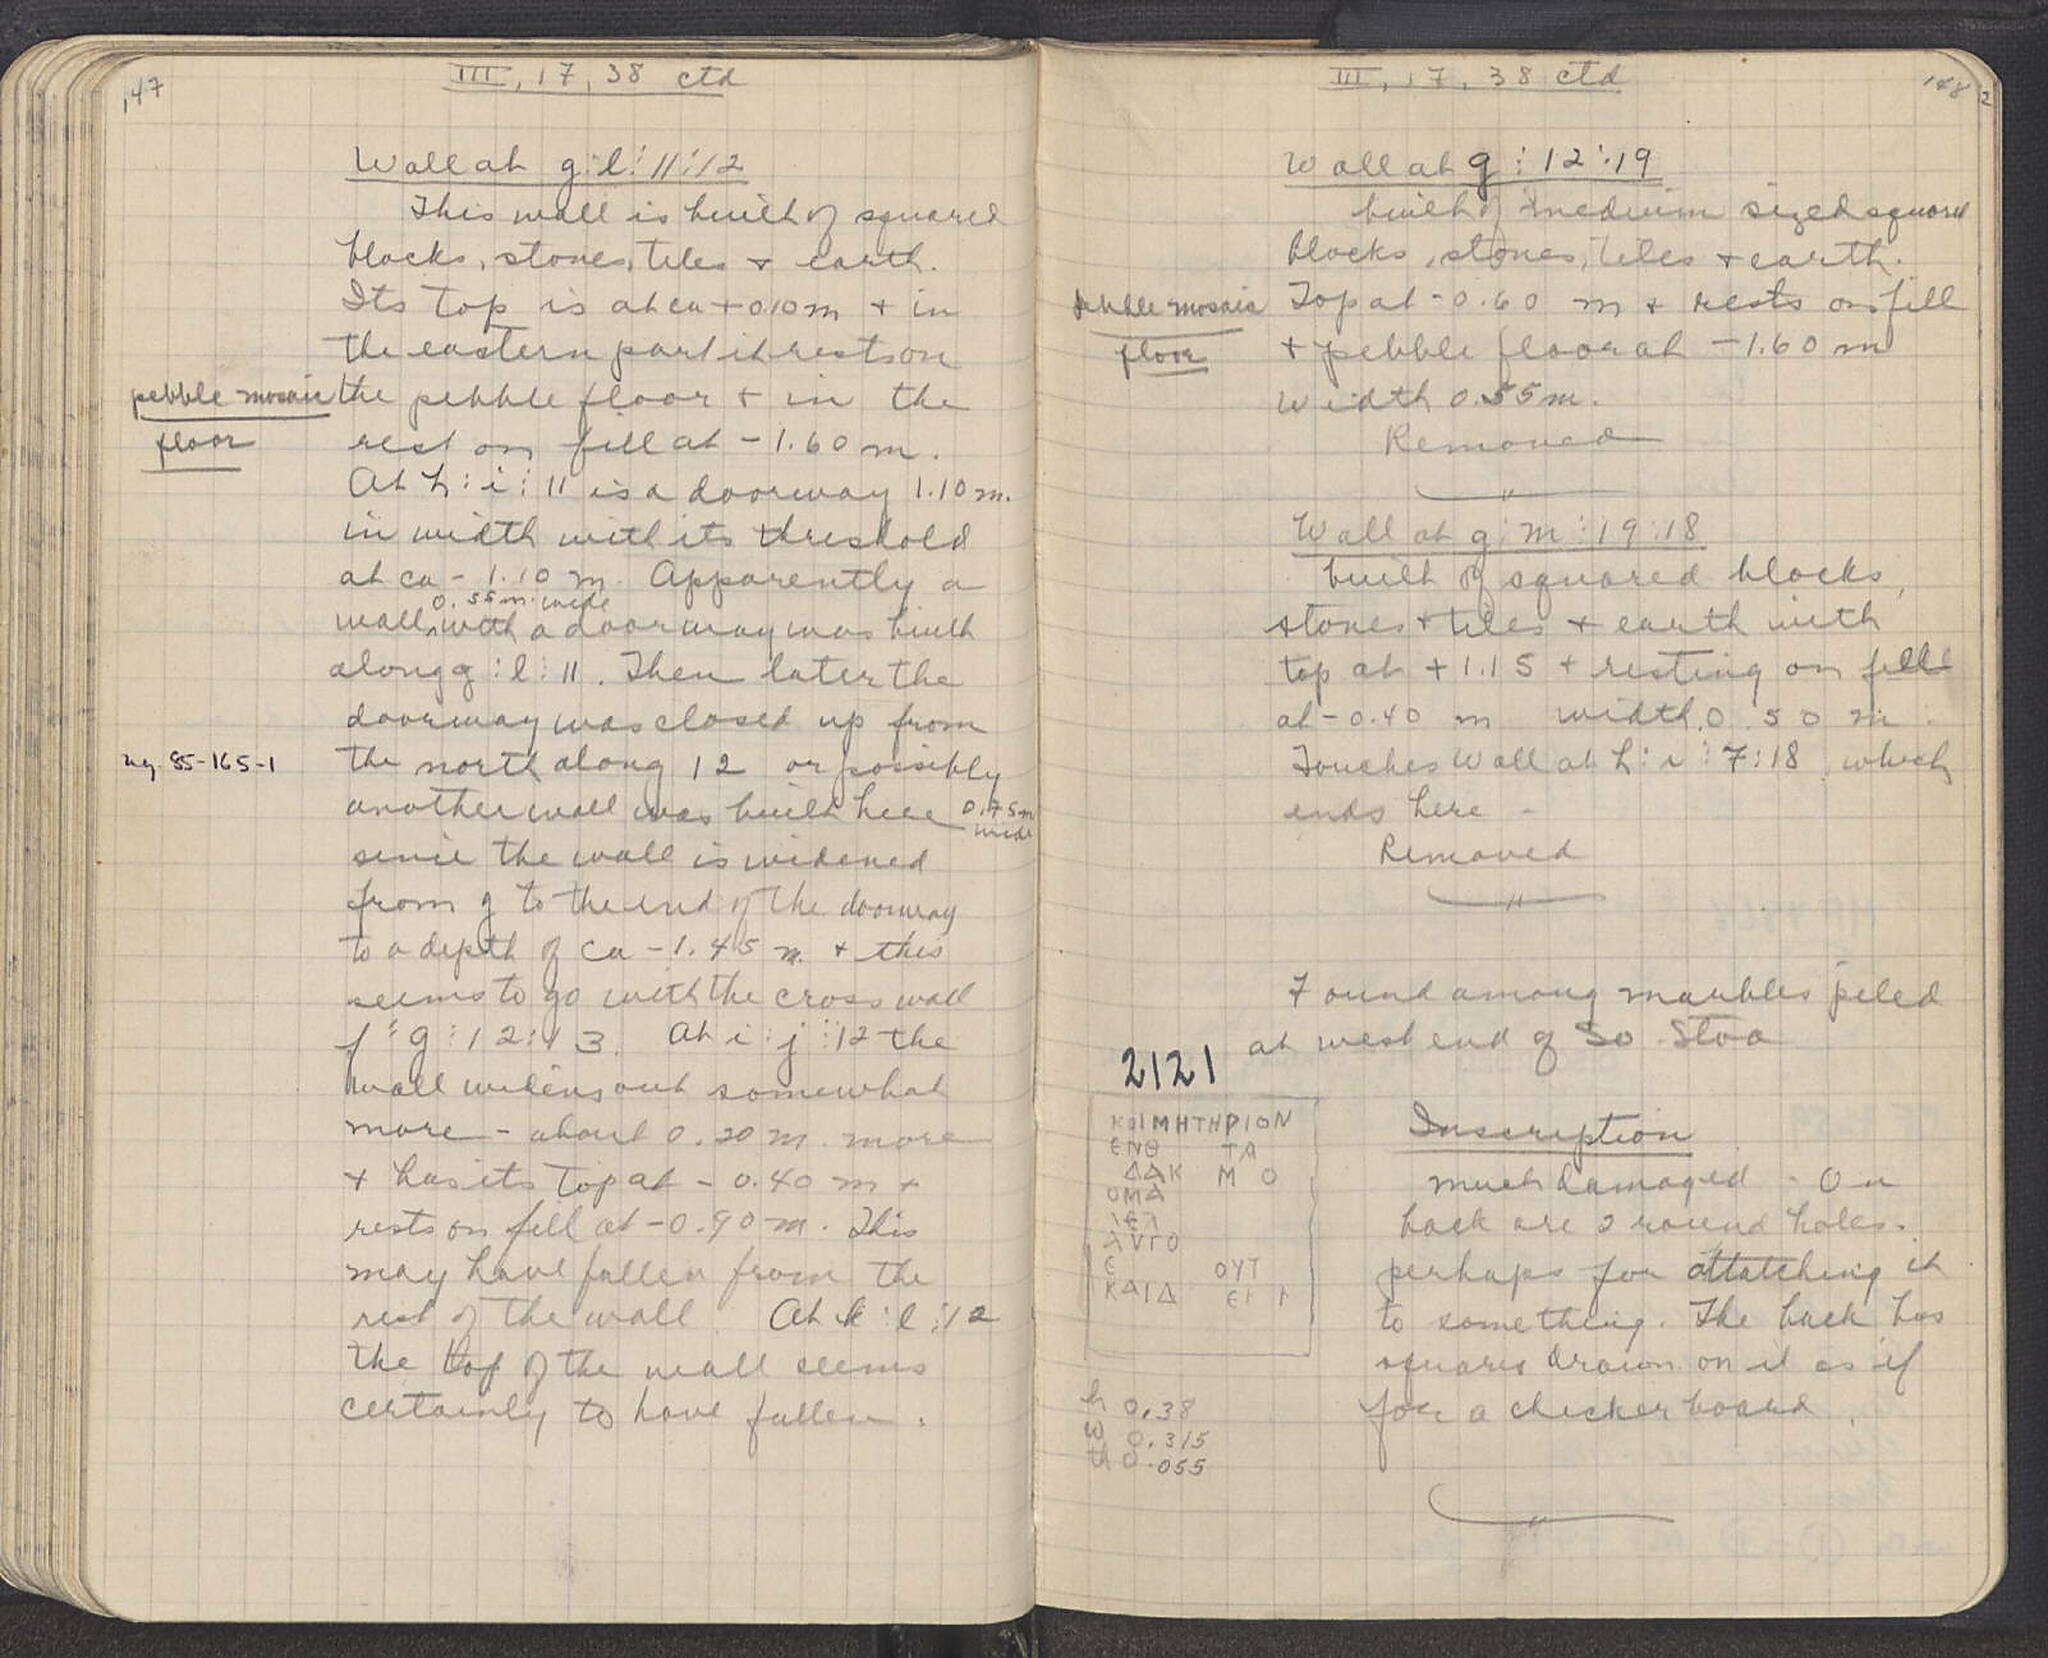 147
III, 17, 38 ctd
Wall at g:l:11:12
This wall is built of squared
blocks, stones, tiles + earth.
Its top is at ca +0.10 m + in
the eastern part it rests on
pebble mosaic
floor
the pebble floor + in the
rest on fill at -1.60 m.
At h:i:11 is a doorway 1.10 m.
in width with its threshold
at ca -1.10 m. Apparently a
0.55 m. wide
wall with a doorway was built
along g:l:11. Then later the
doorway was closed up from
neg. 85-165-1
the north along 12 or possibly
another wall was built here 0.75 m
wide
since the wall is widened
from g to the end of the doorway
to a depth of ca -1.45 m. + this
seems to go with the cross wall
f:g:12:13. At i:j:12 the
wall widens out somewhat
more - about 0.20 m. more
+ has its top at -0.40 m +
rests on fill at -0.90 m. This
may have fallen from the
rest of the wall. At k:l:12
the top of the wall seems
certainly to have fallen.
III, 17, 38 ctd
148
2
Wall at g:12:19
built of medium sized squared
blocks, stones, tiles + earth.
pebble mosaic
floor
Top at -0.60 m + rests on fill
+ pebble floor at -1.60 m
Width 0.55 m.
Removed
Wall at g:m:19:18
built of squared blocks,
stones + tiles + earth with
top at +1.15 + resting on fill
at -0.40 m width 0.50 m.
Touches Wall at h:i:7:18, which
ends here -
Removed
Found among marbles piled
at west end of So Stoa
2121
ΚΟΙΜΗΤΗΡΙΟΝ
ΕΝΘ ΤΑ
ΔΑΚ Μ Ο
ΟΜΑ
ΛΕΛ
ΑVΓΟ
Є ΟΥΤ
ΚΑΙΔ
h 0.38
w 0.315
th 0.055
Inscription
much damaged. On
back are 2 round holes.
perhaps for attatching it
to something. The back has
squares drawn on it as if
for a checker board.